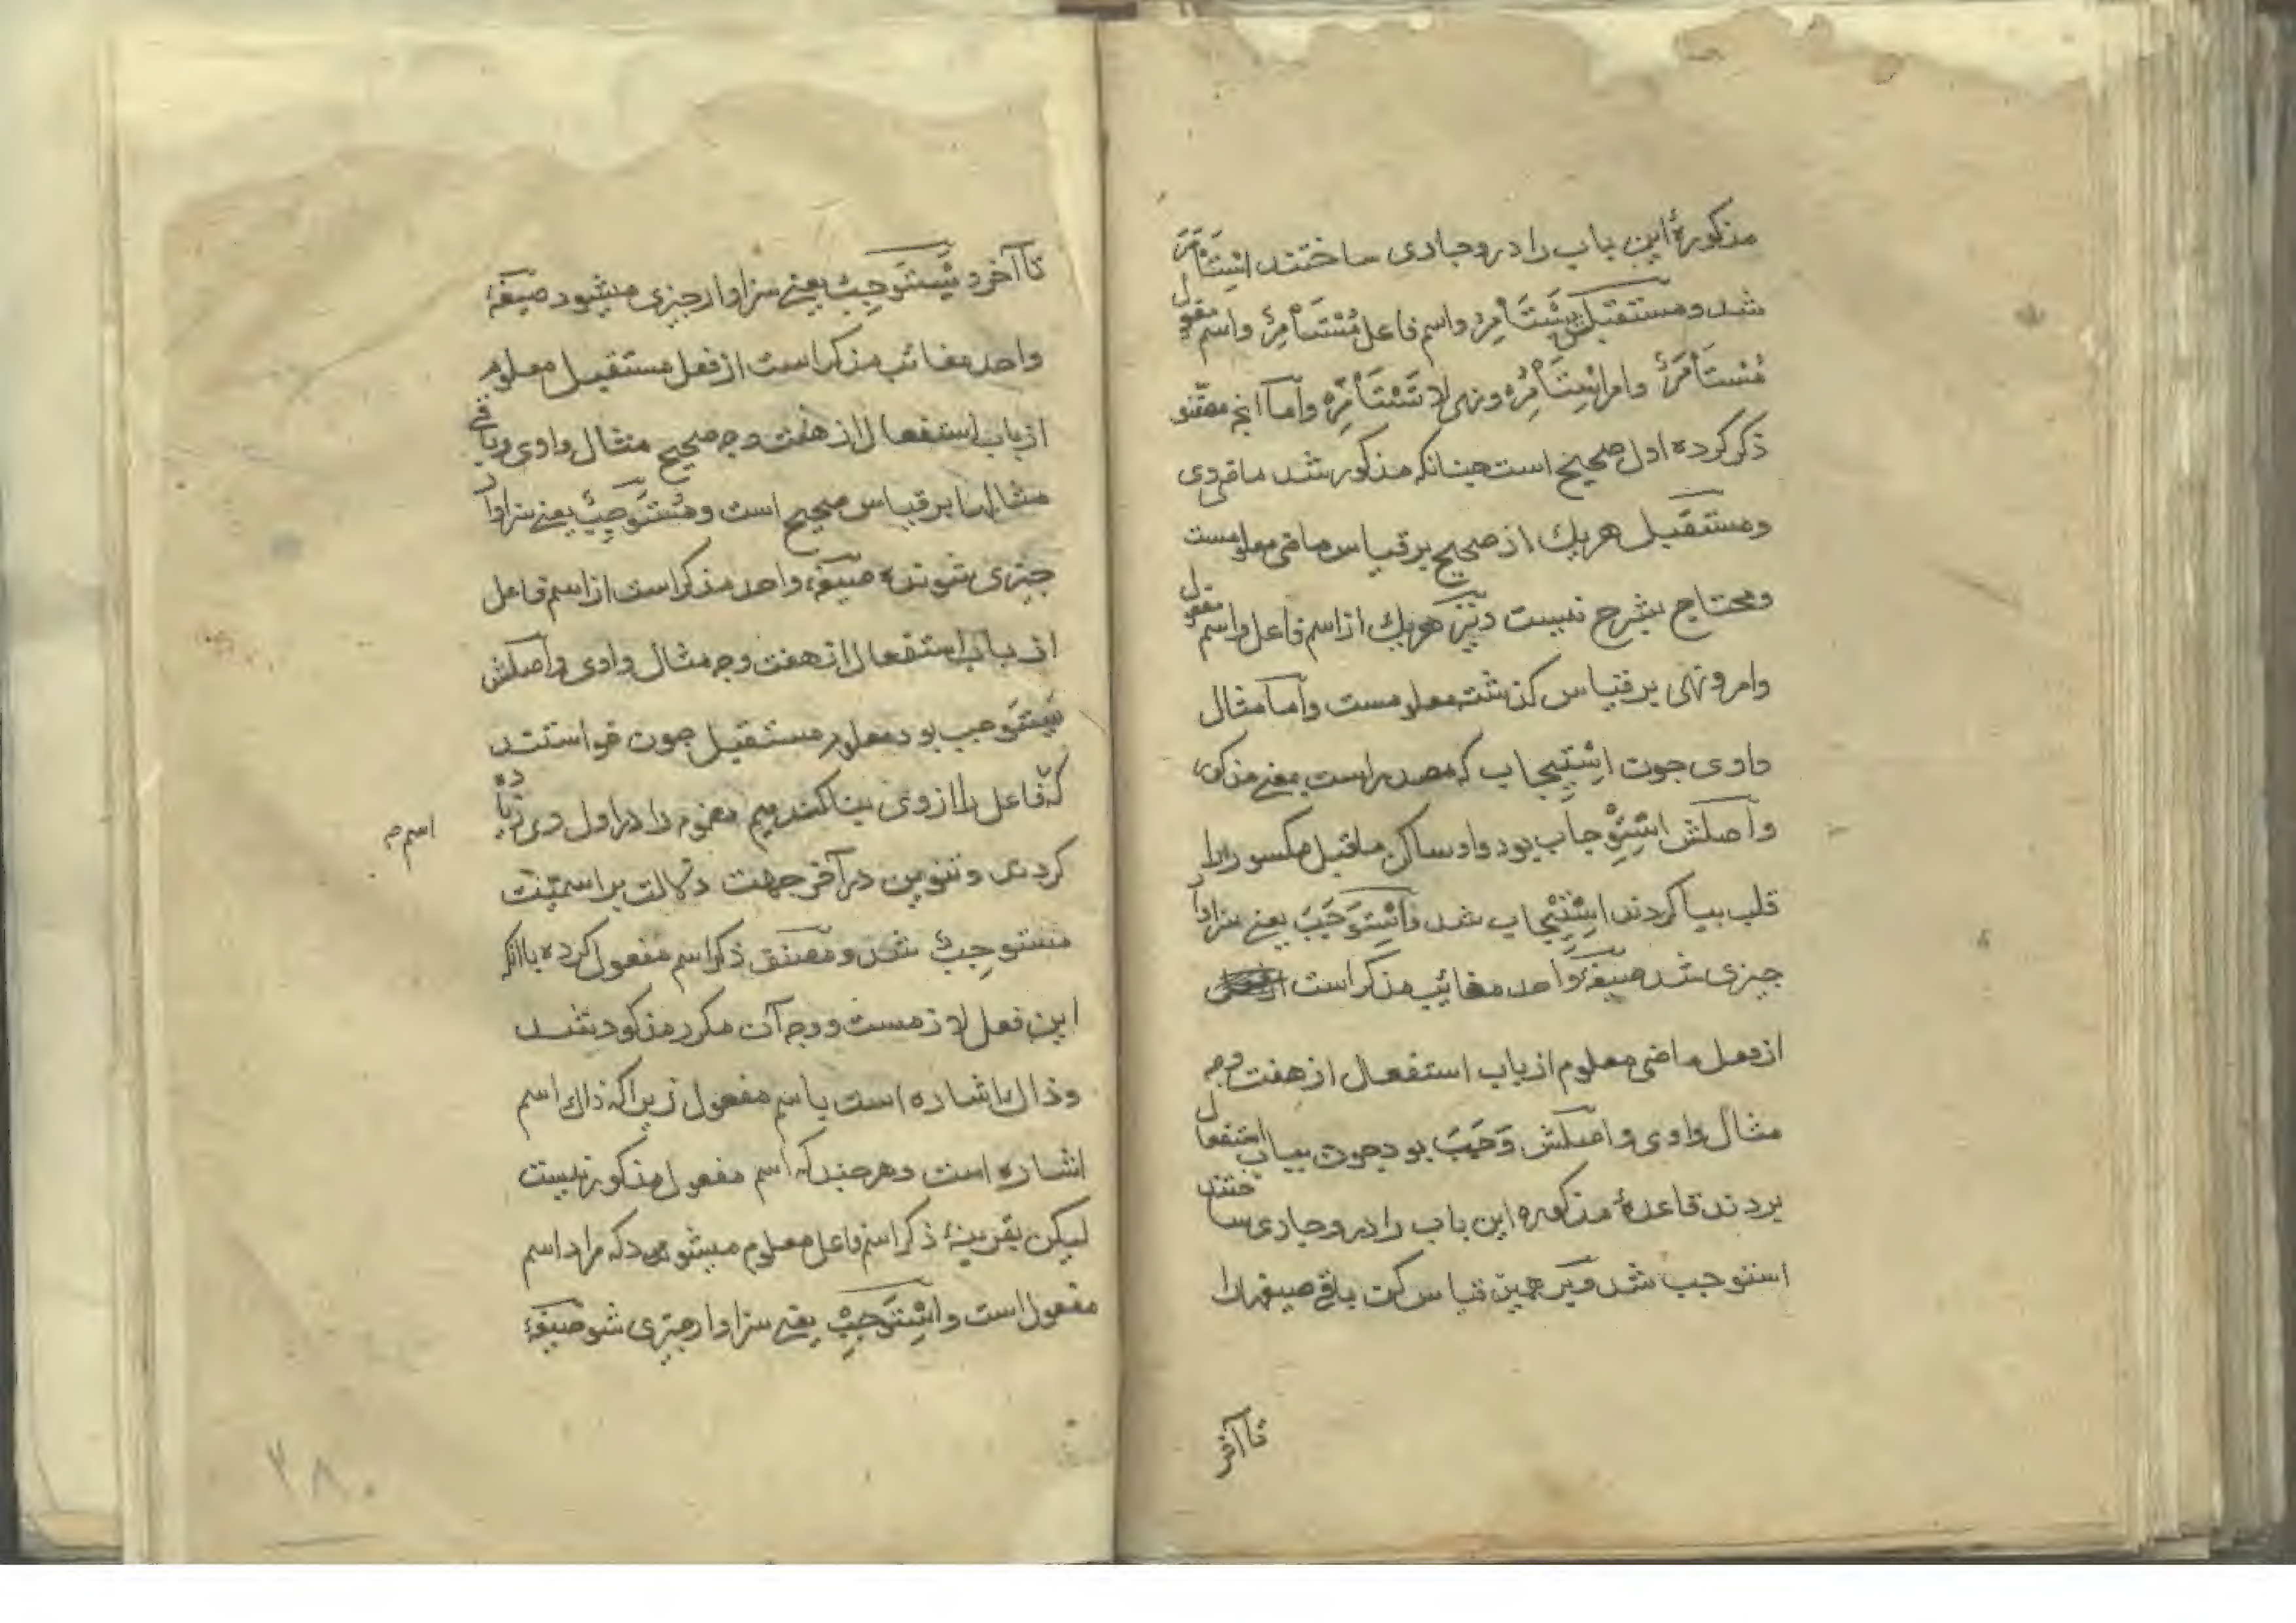 مذکورهٔ این باب را در وجاری ساختند اِسْتَأْمَرَ
شد و مستقبلش یَسْتَأْمِرُ و اسم فاعل مُسْتَأْمِرٌ و اسم مفعول
مُسْتَأْمَرٌ و امر اِسْتَأْمِرْ و نهی لا تَسْتَأْمِرْ و اما انچه مصنف
ذکر کرده اول صحیح است چنانکه مذکور شد ماقردی
و مستقبل هریك از صحیح بر قیاس ماضی معلومست
و محتاج بشرح نیست و نیز هریك از اسم فاعل و اسم مفعول
و امر و نهی بر قیاس کذشته معلومست و اما مثال
واوی چون اِسْتِیجاب که مصدر است بمعنی مذکور
و اصلش اِسْتِوْجاب بود واو ساکن ماقبل مکسور را
قلب بیا کردند اِسْتِیْجاب شد و اِسْتَوْجَبَ یعنی سزاوار
چیزی شد صیغهٔ واحد مغائب مذکر است
از فعل ماضی معلوم از باب استفعال از هفت وجه
مثال واوی و اصلش وَجَبَ بود چون بباب استفعال
بردند قاعدهٔ مذکوره این باب را در وجاری ساختند
استوجب شد و بر همین قیاس کن باقی صیغها را
تا آخر
تا آخر و یَسْتَوْجِبُ یعنی سزاوار چیزی میشود صیغهٔ
واحد مغائب مذکر است از فعل مستقبل معلوم
از باب استفعال از هفت وجه صحیح مثال واوی و باقی
مثالها بر قیاس صحیح است و مُسْتَوْجِبٌ یعنی سزاوار
چیزی شونده صیغهٔ واحد مذکر است از اسم فاعل
از باب استفعال از هفت وجه مثال واوی و اصلش
یَسْتَوْجِب بود معلوم مستقبل چون خواستند
که فاعل را از وی بنا کنند میم مضموم را در اول وی زیاده
اسم
کردند و تنوین در آخر جهت دلالت بر اسمیّت
مستوجِبٌ شد و مصنف ذکر اسم مفعول کرده با آنکه
این فعل لازمست و وجه آن مکرر مذکور شد
و ذاك اشاره است باسم مفعول زیرا که ذاك اسم
اشاره است و هرچند که اسم مفعول مذکور نیست
لیکن بقرینهٔ ذکر اسم فاعل معلوم میشود که مراد اسم
مفعول است و اِسْتَوْجِبْ یعنی سزاوار چیزی شو صیغهٔ
۲۸۰